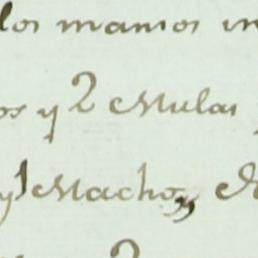 los manos
os y 2 Mulas
y 1 Macho,,